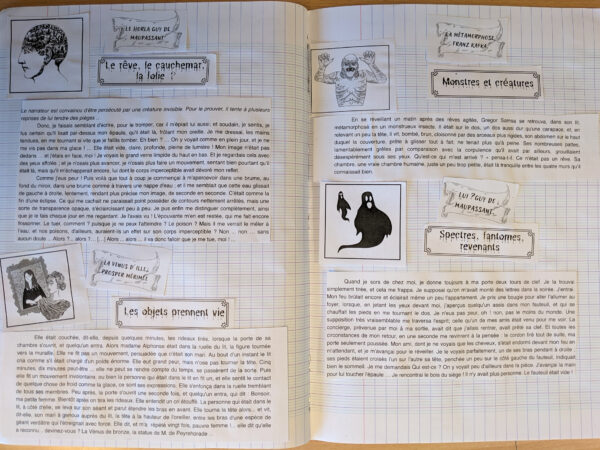 LE HORLA GUY DE
MAUPASSANT
Le rêve, le cauchemar,
la folie ?
Le narrateur est convaincu d'être persécuté par une créature invisible. Pour le prouver, il tente à plusieurs
reprises de lui tendre des pièges
Donc, je faisais semblant d'écrire, pour le tromper, car il m'épiait lui aussi; et soudain, je sentis, je
fus certain qu'il lisait par-dessus mon épaule, qu'il était là, frôlant mon oreille. Je me dressai, les mains
tendues, en me tournant si vite que je faillis tomber. Eh bien ? ... On y voyait comme en plein jour, et je ne
me vis pas dans ma glace ! ... Elle était vide, claire, profonde, pleine de lumière ! Mon image n'était pas
dedans ... et j'étais en face, moi ! Je voyais le grand verre limpide du haut en bas. Et je regardais cela avec
des yeux affolés ; et je n'osais plus avancer, je n'osais plus faire un mouvement, sentant bien pourtant qu'il
était là, mais qu'il m'échapperait encore, lui dont le corps imperceptible avait dévoré mon reflet.
Comme j'eus peur ! Puis voilà que tout à coup je commençai à m'apercevoir dans une brume, au
fond du miroir, dans une brume comme à travers une nappe d'eau ; et il me semblait que cette eau glissait
de gauche à droite, lentement, rendant plus précise mon image, de seconde en seconde. C'était comme la
fin d'une éclipse. Ce qui me cachait ne paraissait point posséder de contours nettement arrêtés, mais une
sorte de transparence opaque, s'éclaircissant peu à peu. Je pus enfin me distinguer complètement, ainsi
que je le fais chaque jour en me regardant. Je l'avais vu ! L'épouvante m'en est restée, qui me fait encore
frissonner. Le tuer, comment ? puisque je ne peux l'atteindre ? Le poison ? Mais il me verrait le mêler à
l'eau; et nos poisons, d'ailleurs, auraient-ils un effet sur son corps imperceptible ? Non ... non ... sans
aucun doute .. Alors ?... alors ?... [...] Alors ... alors ... il va donc falloir que je me tue, moi ! ...
LA VÉNUS D'ILLE,
PROSPER MÉRIMÉE
Les objets prennent vie
Elle était couchée, dit-elle, depuis quelques minutes, les rideaux tirés, lorsque la porte de sa
chambre s'ouvrit, et quelqu'un entra. Alors madame Alphonse était dans la ruelle du lit, la figure tournée
vers la muraille. Elle ne fit pas un mouvement, persuadée que c'était son mari. Au bout d'un instant le lit
cria comme s'il était chargé d'un poids énorme. Elle eut grand peur, mais n'osa pas tourner la tête. Cinq
minutes, dix minutes peut-être ... elle ne peut se rendre compte du temps, se passèrent de la sorte. Puis
elle fit un mouvement involontaire, ou bien la personne qui était dans le lit en fit un, et elle sentit le contact
de quelque chose de froid comme la glace, ce sont ses expressions. Elle s'enfonça dans la ruelle tremblant
de tous ses membres. Peu après, la porte s'ouvrit une seconde fois, et quelqu'un entra, qui dit : Bonsoir,
ma petite femme. Bientôt après on tira les rideaux. Elle entendit un cri étouffé. La personne qui était dans le
lit, à côté d'elle, se leva sur son séant et parut étendre les bras en avant. Elle tourna la tête alors... et vit,
dit-elle, son mari à genoux auprès du lit, la tête à la hauteur de l'oreiller, entre les bras d'une espèce de
géant verdâtre qui l'étreignait avec force. Elle dit, et m'a répété vingt fois, pauvre femme !... elle dit qu'elle
a reconnu... devinez-vous ? La Vénus de bronze, la statue de M. de Peyrehorade ...
LA MÉTAMORPHOSE,
FRANZ KAFKA
Monstres et créatures
En se réveillant un matin après des rêves agités, Gregor Samsa se retrouva, dans son lit,
métamorphosé en un monstrueux insecte. Il était sur le dos, un dos aussi dur qu'une carapace, et, en
relevant un peu la tête, il vit, bombé, brun, cloisonné par des arceaux plus rigides, son abdomen sur le haut
duquel la couverture, prête à glisser tout à fait, ne tenait plus qu'à peine. Ses nombreuses pattes,
lamentablement grêles par comparaison avec la corpulence qu'il avait par ailleurs, grouillaient
désespérément sous ses yeux. Qu'est-ce qui m'est arrivé ? » pensa-t-il. Ce n'était pas un rêve. Sa
chambre, une vraie chambre humaine, juste un peu trop petite, était là tranquille entre les quatre murs qu'il
connaissait bien.
LUI ? GUY DE
MAUPASSANT
Spectres, fantomes,
revenants
Quand je sors de chez moi, je donne toujours à ma porte deux tours de clef. Je la trouvai
simplement tirée, et cela me frappa. Je supposai qu'on m'avait monté des lettres dans la soirée. J'entrai.
Mon feu brûlait encore et éclairait même un peu l'appartement. Je pris une bougie pour aller l'allumer au
foyer, lorsque, en jetant les yeux devant moi, j'aperçus quelqu'un assis dans mon fauteuil, et qui se
chauffait les pieds en me tournant le dos. Je n'eus pas peur, oh ! non, pas le moins du monde. Une
supposition très vraisemblable me traversa l'esprit; celle qu'un de mes amis était venu pour me voir. La
concierge, prévenue par moi à ma sortie, avait dit que j'allais rentrer, avait prêté sa clef. Et toutes les
circonstances de mon retour, en une seconde me revinrent à la pensée : le cordon tiré tout de suite, ma
porte seulement poussée. Mon ami, dont je ne voyais que les cheveux, s'était endormi devant mon feu en
m'attendant, et je m'avançai pour le réveiller. Je le voyais parfaitement, un de ses bras pendant à droite ;
ses pieds étaient croisés l'un sur l'autre sa tête, penchée un peu sur le côté gauche du fauteuil, indiquait
bien le sommeil. Je me demandais Qui est-ce ? On y voyait peu d'ailleurs dans la pièce. J'avançai la main
pour lui toucher l'épaule ... Je rencontrai le bois du siège ! Il n'y avait plus personne. Le fauteuil était vide !